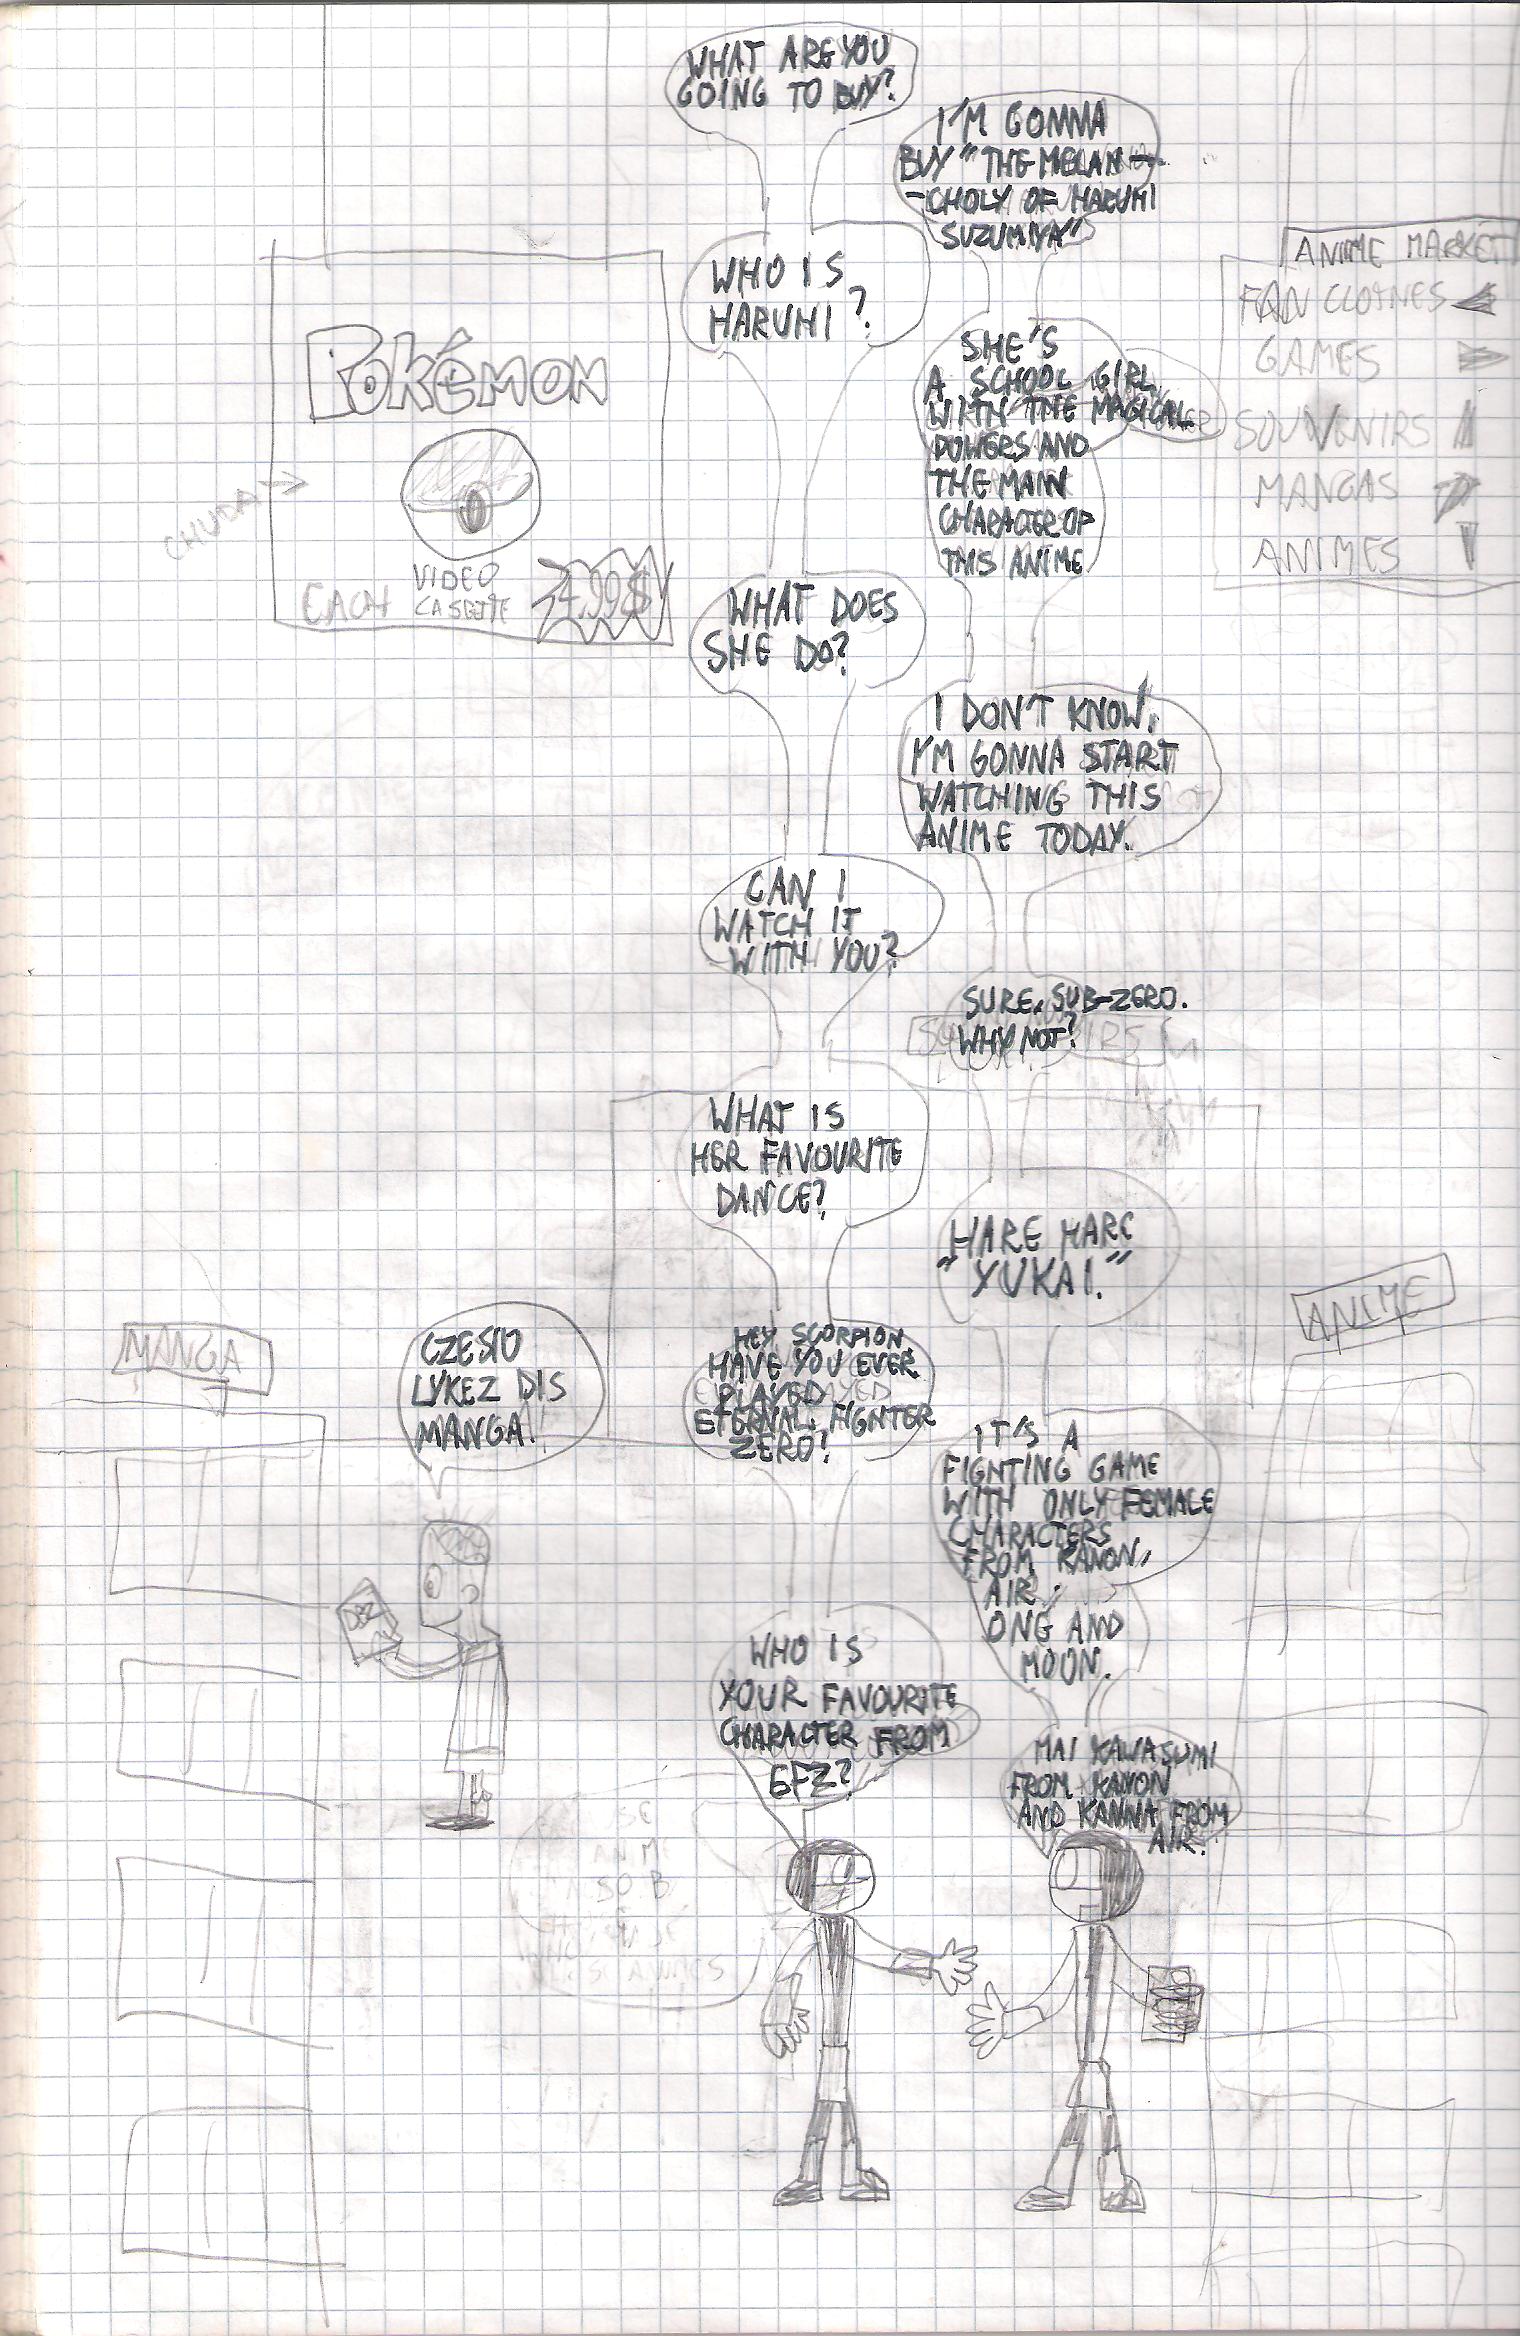 WHAT ARE YOU
GOING TO BUY?
I'M GONNA
BUY "THE MELAN-
-CHOLY OF HARUHI
SUZUMIYA"
WHO IS
HARUHI?
SHE'S
A SCHOOL GIRL
WITH THE MAGICAL
POWERS AND
THE MAIN
CHARACTER OF
THIS ANIME
WHAT DOES
SHE DO?
I DON'T KNOW.
I'M GONNA START
WATCHING THIS
ANIME TODAY.
CAN I
WATCH IT
WITH YOU?
SURE, SUB-ZERO.
WHY NOT?
WHAT IS
HER FAVOURITE
DANCE?
HARE HARE
"YUKAI."
HEY SCORPION
HAVE YOU EVER
PLAYED
ETERNAL FIGHTER
ZERO?
IT'S A
FIGHTING GAME
WITH ONLY FEMALE
CHARACTERS
FROM KANON,
AIR,
ONE AND
MOON.
WHO IS
YOUR FAVOURITE
CHARACTER FROM
EFZ?
MAI KAWASUMI
FROM KANON
AND KANNA FROM
AIR.
POKÉMON
CHUDA
EACH VIDEO
CASETTE
4,99$
ANIME MARKET
FAN CLOTHES
GAMES
SOUVENIRS
MANGAS
ANIMES
MANGA
CZESIO
LYKEZ DIS
MANGA!
DBZ
ANIME